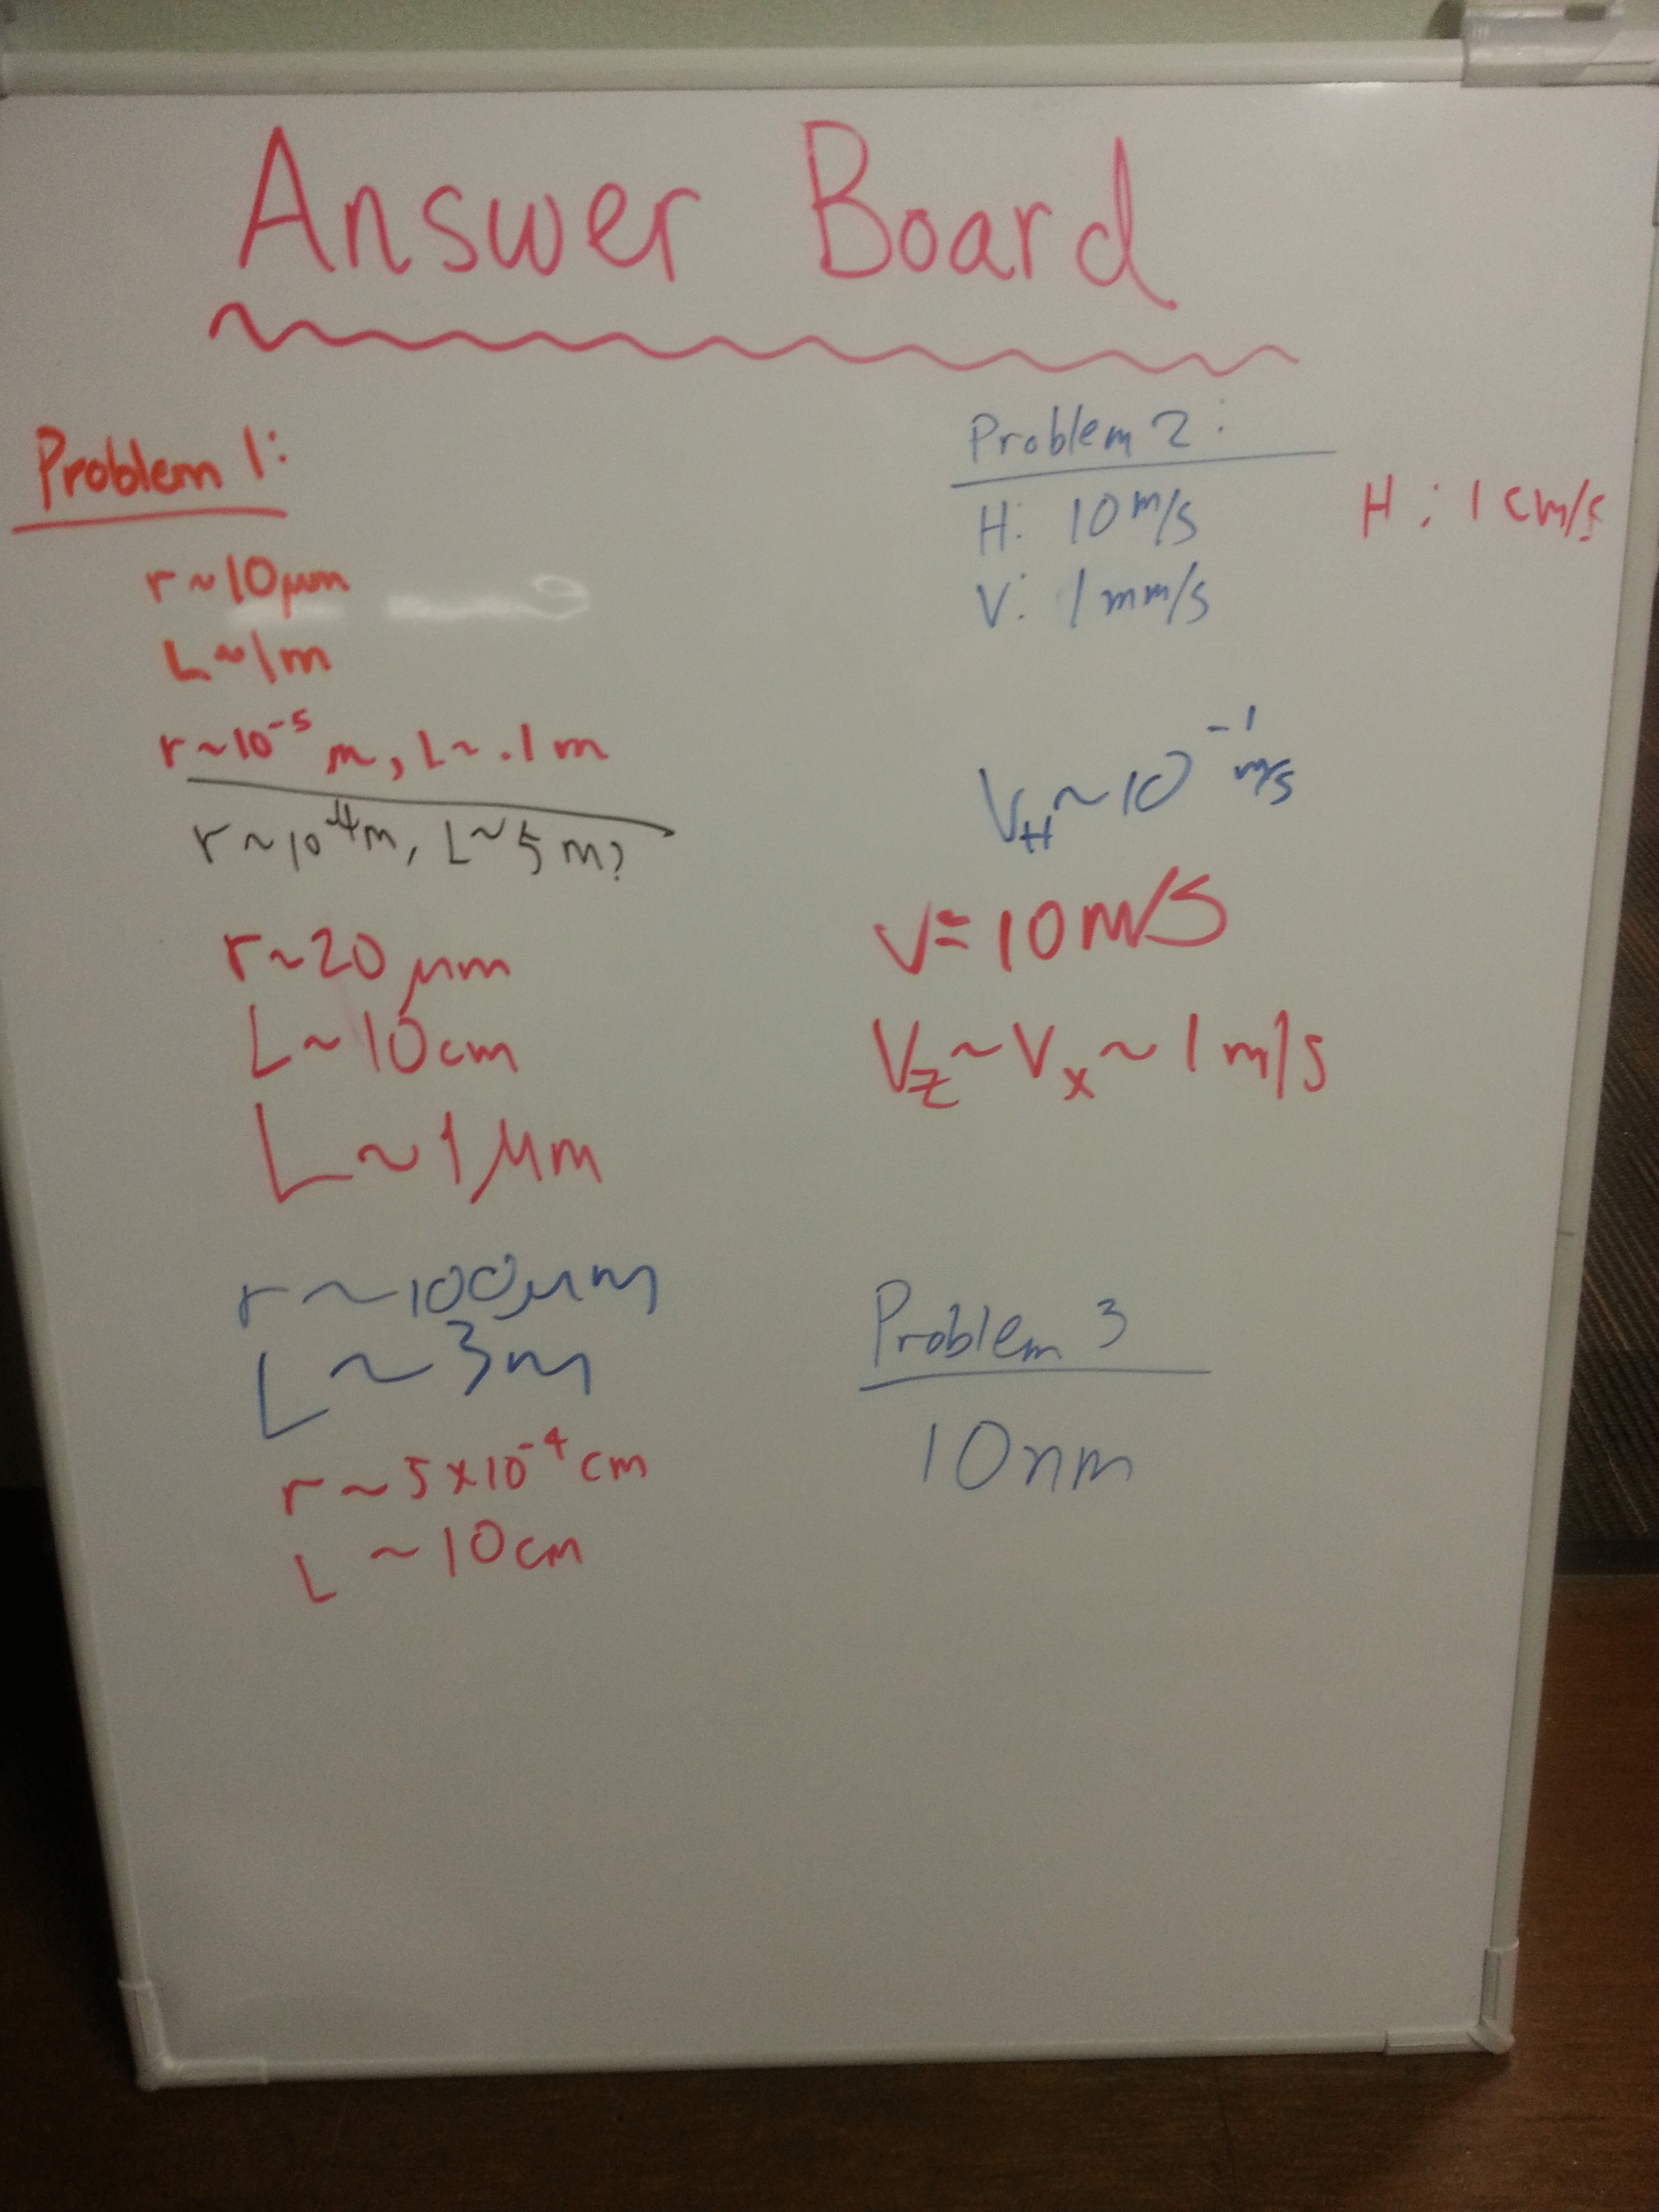 Answer Board
Problem 1:
r ~ 10 μm
L ~ 1 m
r ~ 10⁻⁵ m, L ~ .1 m
r ~ 10⁻⁴ m, L ~ 5 m?
r ~ 20 μm
L ~ 10 cm
L ~ 1 μm
r ~ 100 μm
L ~ 3 m
r ~ 5 x 10⁻⁴ cm
L ~ 10 cm
Problem 2:
H: 10 m/s
H: 1 cm/s
V: 1 mm/s
V_H ~ 10⁻¹ m/s
V = 10 m/s
V_z ~ V_x ~ 1 m/s
Problem 3
10 nm